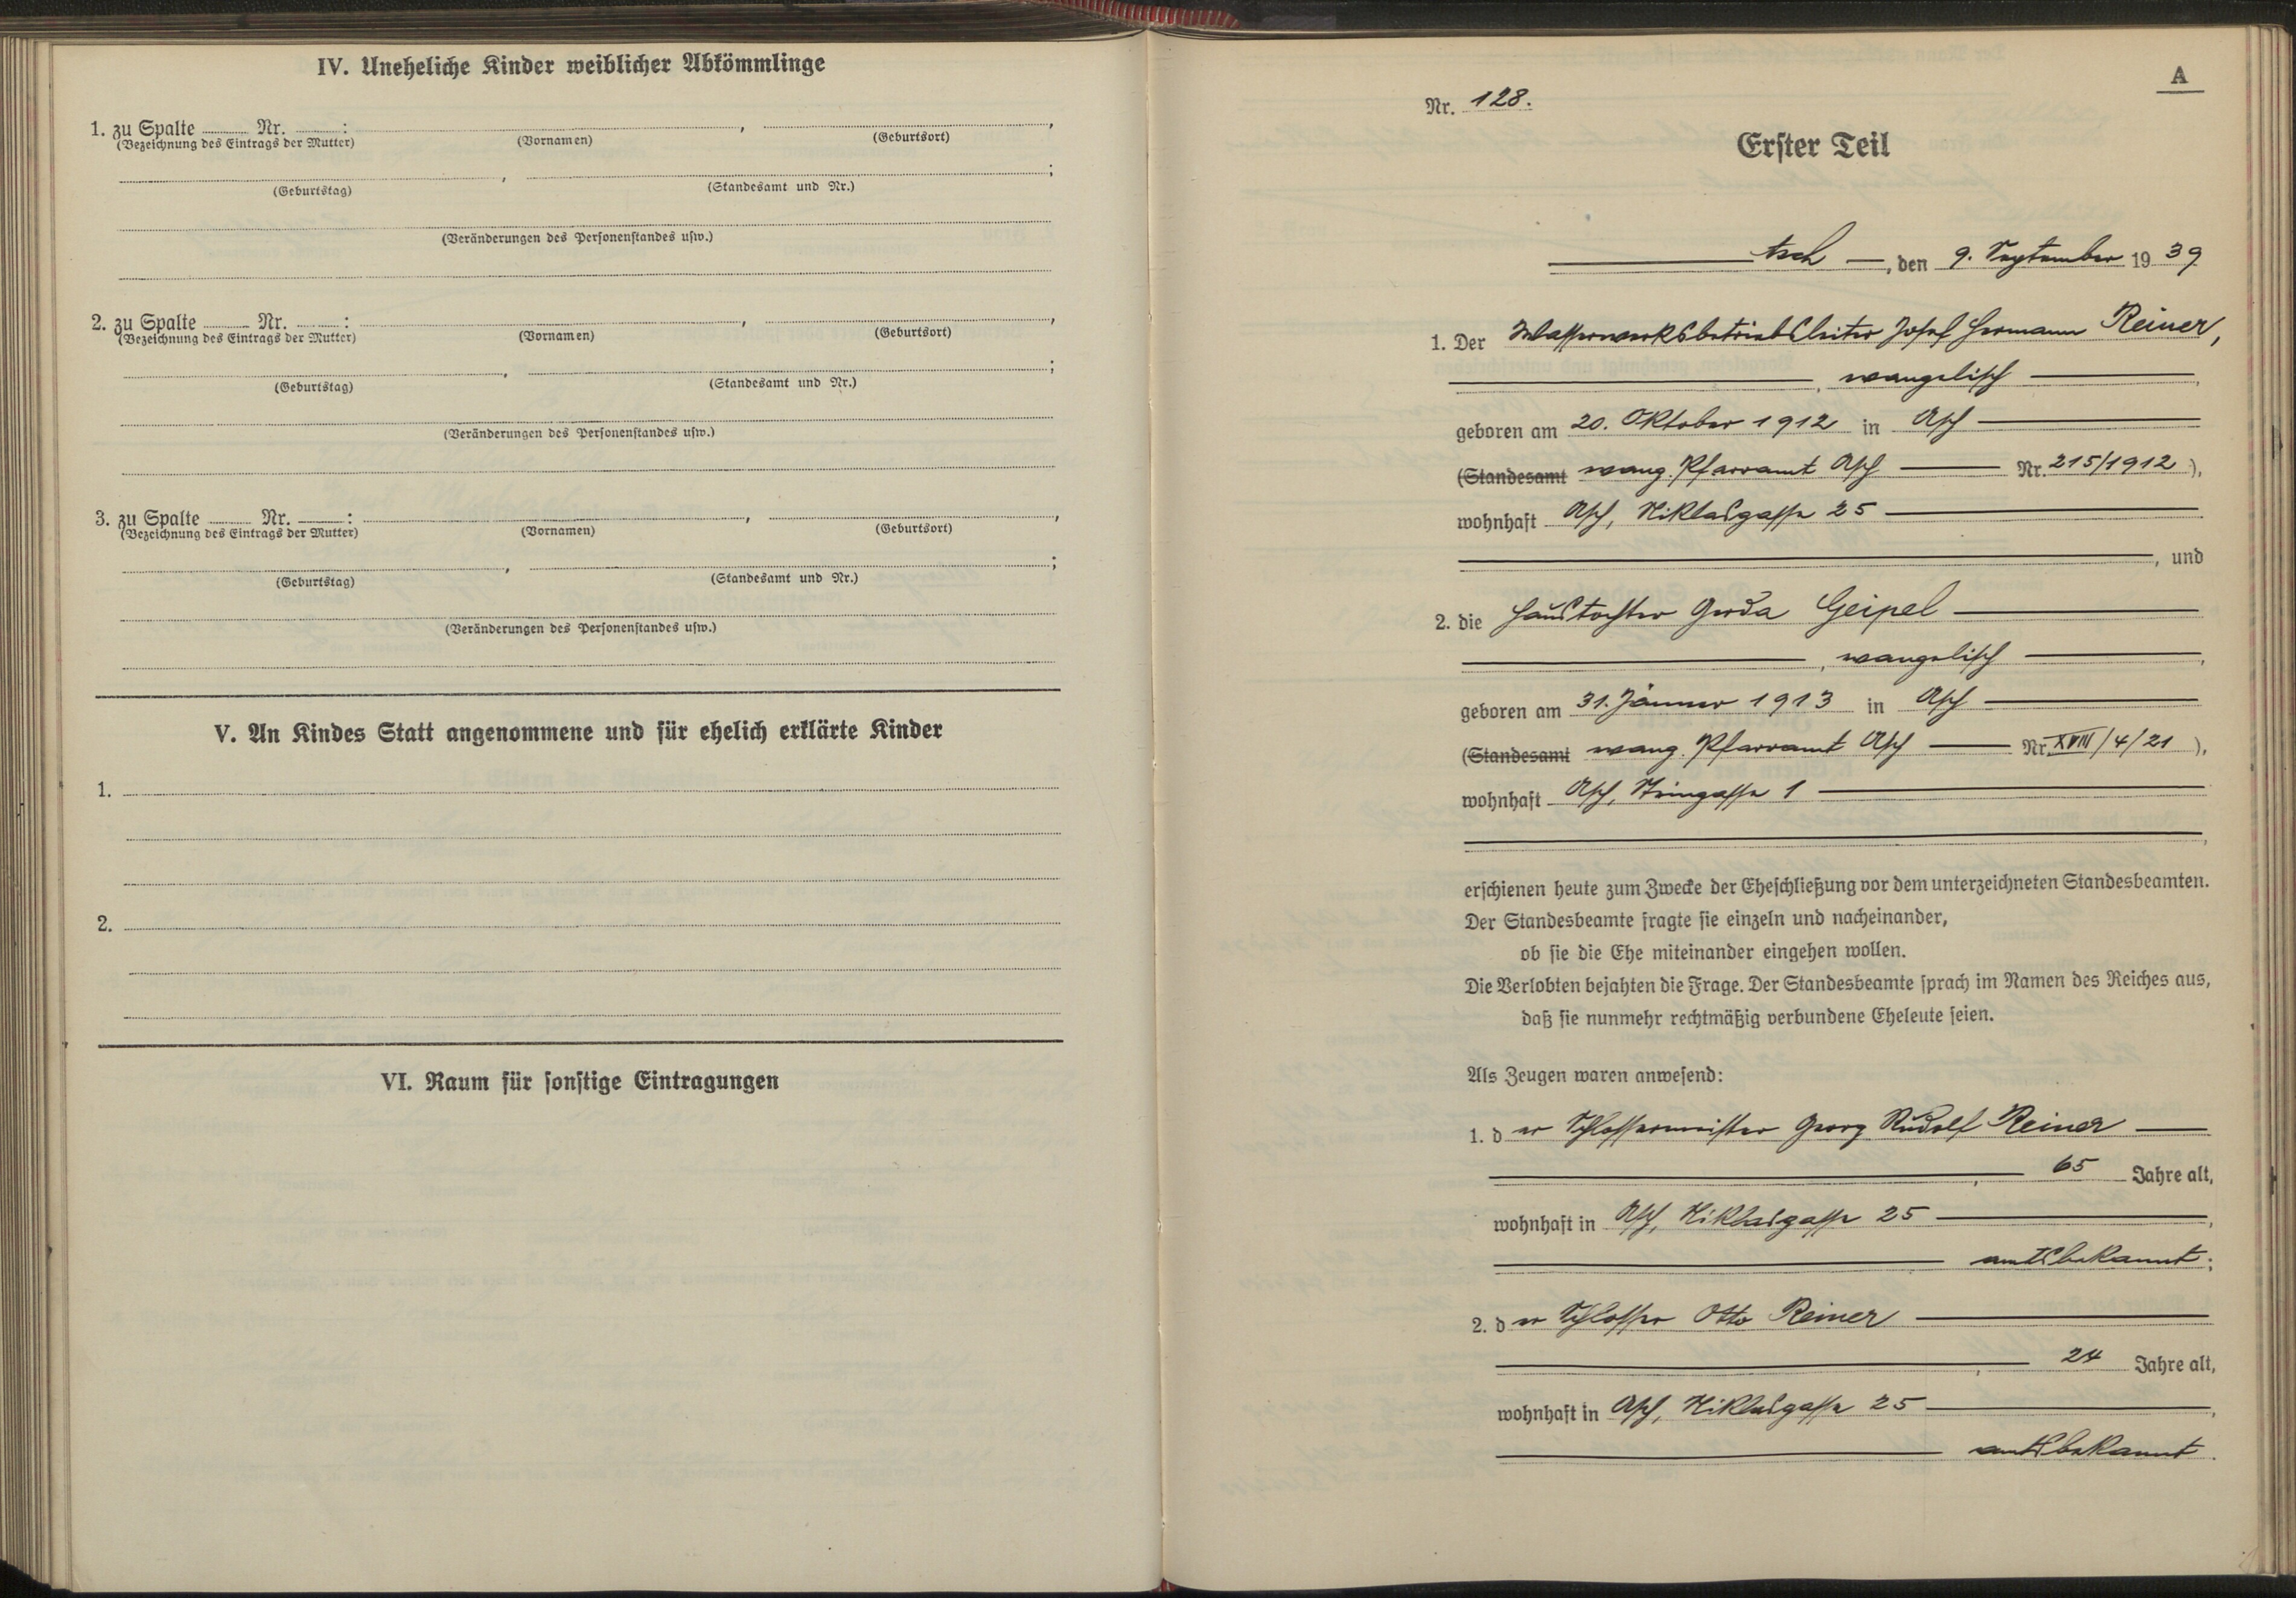 IV. Uneheliche Kinder weiblicher Abkömmlinge
1. zu Spalte Nr. : , ,
(Bezeichnung des Eintrags der Mutter) (Vornamen) (Geburtsort)
, ;
(Geburtstag) (Standesamt und Nr.)
(Veränderungen des Personenstandes usw.)
2. zu Spalte Nr. : , ,
(Bezeichnung des Eintrags der Mutter) (Vornamen) (Geburtsort)
, ;
(Geburtstag) (Standesamt und Nr.)
(Veränderungen des Personenstandes usw.)
3. zu Spalte Nr. : , ,
(Bezeichnung des Eintrags der Mutter) (Vornamen) (Geburtsort)
, ;
(Geburtstag) (Standesamt und Nr.)
(Veränderungen des Personenstandes usw.)
V. An Kindes Statt angenommene und für ehelich erklärte Kinder
1.
2.
VI. Raum für sonstige Eintragungen
A
Nr. 128.
Erster Teil
Asch, den 9. September 1939
1. Der Wasserwerksbetriebsleiter Josef Hermann Reiner,
, evangelisch,
geboren am 20. Oktober 1912 in Asch
(Standesamt evang. Pfarramt Asch Nr. 215/1912),
wohnhaft Asch, Niklasgasse 25
, und
2. die Haustochter Gerda Geipel
, evangelisch,
geboren am 31. Jänner 1913 in Asch
(Standesamt evang. Pfarramt Asch Nr. XVIII/4/21),
wohnhaft Asch, Steingasse 1
,
erschienen heute zum Zwecke der Eheschließung vor dem unterzeichneten Standesbeamten.
Der Standesbeamte fragte sie einzeln und nacheinander,
ob sie die Ehe miteinander eingehen wollen.
Die Verlobten bejahten die Frage. Der Standesbeamte sprach im Namen des Reiches aus,
daß sie nunmehr rechtmäßig verbundene Eheleute seien.
Als Zeugen waren anwesend:
1. der Schlossermeister Georg Rudolf Reiner
, 65 Jahre alt,
wohnhaft in Asch, Niklasgasse 25,
amtsbekannt;
2. der Schlosser Otto Reiner
, 24 Jahre alt,
wohnhaft in Asch, Niklasgasse 25,
amtsbekannt.